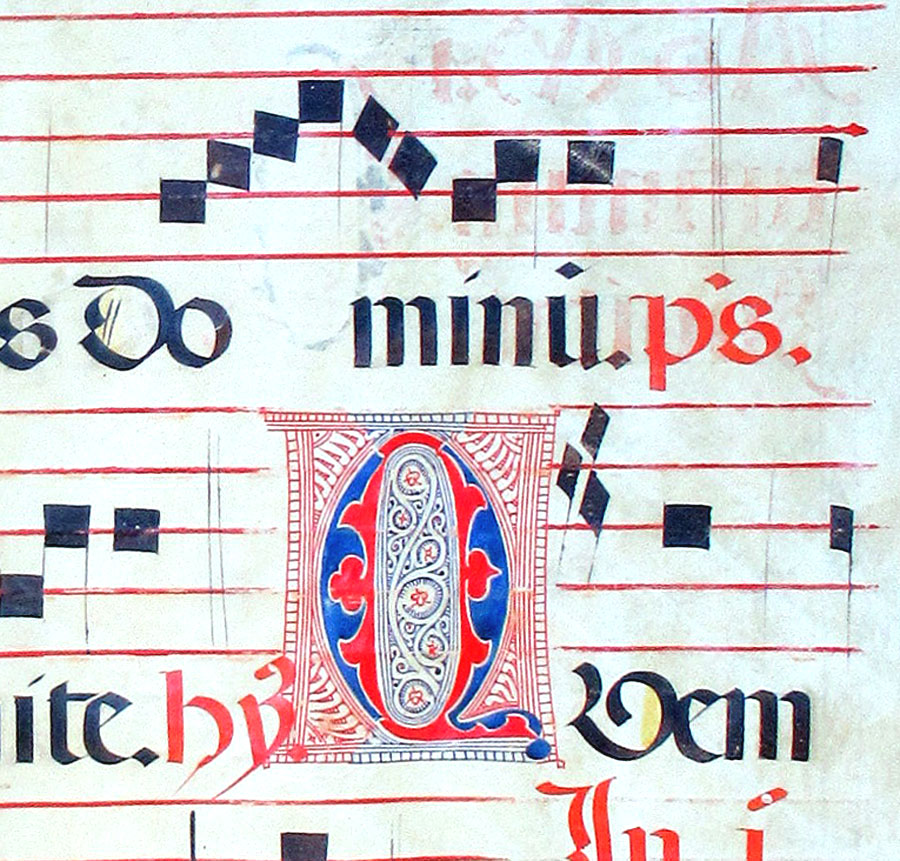 s Do minū. p̄s.
ite. hỹ. Q Vem
In i